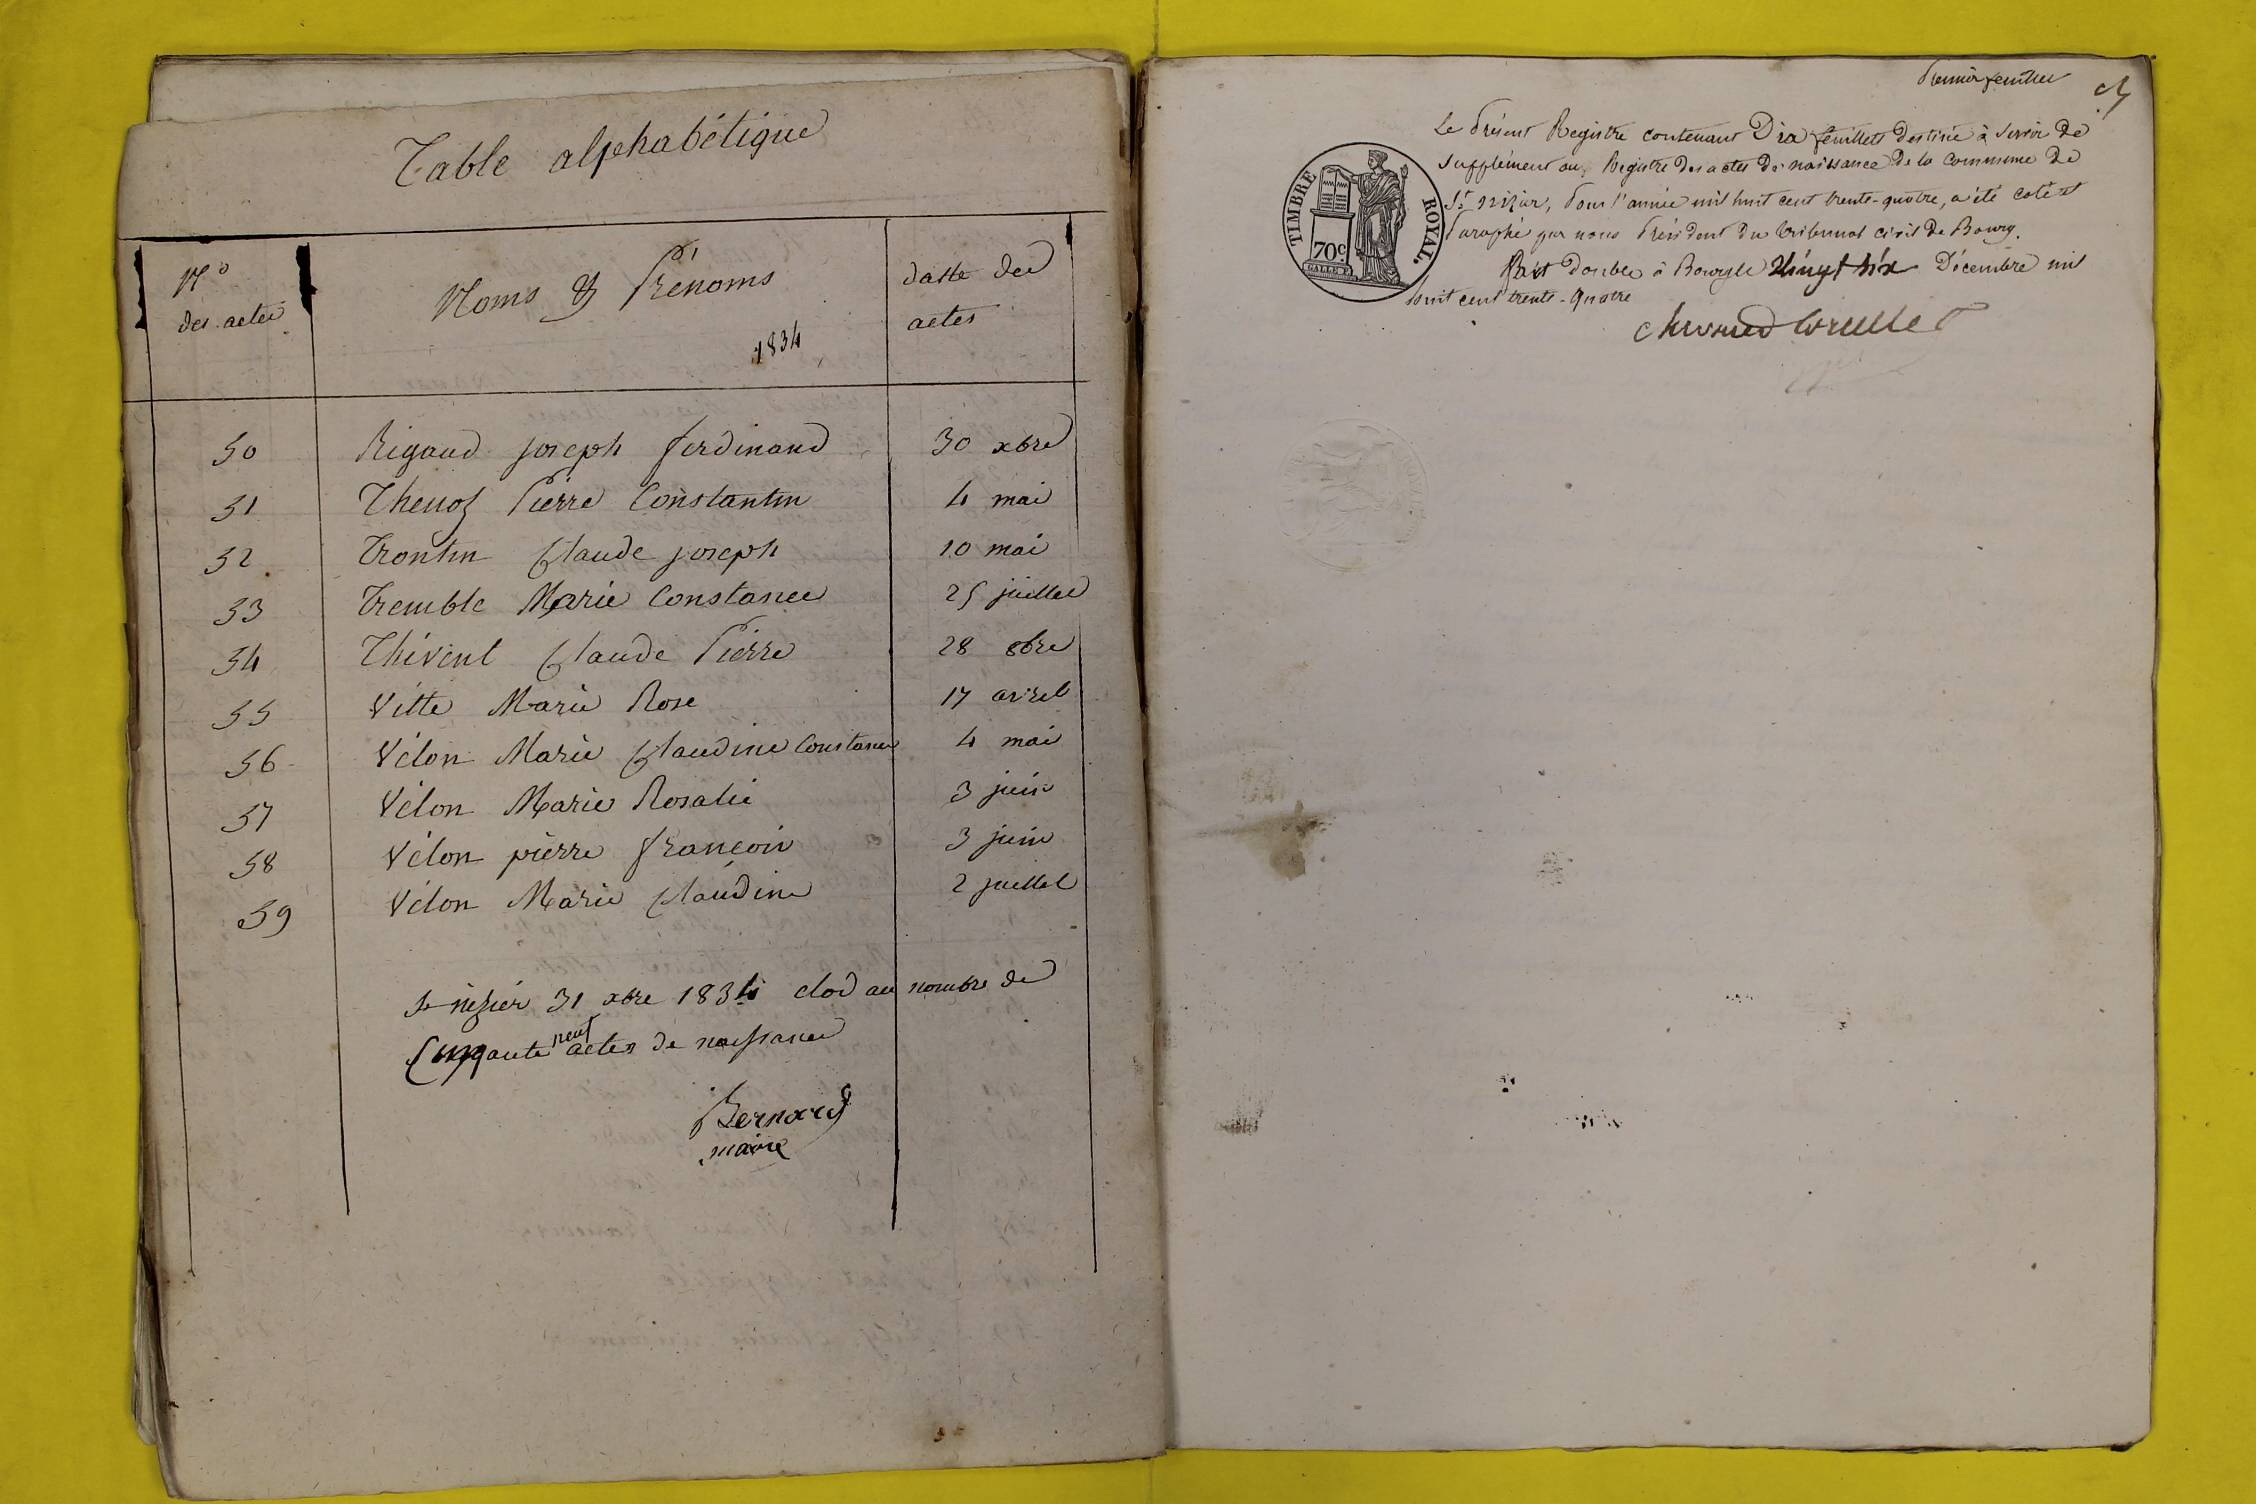 Table alphabétique
No
des actes
Noms & Prénoms
1834
datte des
actes
50 Rigaud joseph ferdinand 30 xbre
51 Thenoz Pierre Constantin 4 mai
52 Trontin Claude joseph 10 mai
53 Tremble Marie Constance 25 juillet
54 Thévent Claude Pierre 28 8bre
55 Vitte Marie Rose 17 avril
56 Vélon Marie Claudine Constance 4 mai
57 Vélon Marie Rosalie 3 juin
58 Vélon pierre françois 3 juin
59 Vélon Marie Claudine 2 juillet
St nizier 31 xbre 1834 clod au nombre de
Cinqante neuf actes de naissance
Bernard
maire
Premier feuillet
Le Présent Registre contenant Dix feuillets destiné à servir de
Supplément au Registre des actes de naissance de la commune de
St nizier, Pour l'année mil huit cent trente-quatre, a été coté et
Paraphé par nous Président du tribunal civil de Bourg.
Fait double à Bourg le Vingt six Décembre mil
huit cent trente-quatre
TIMBRE ROYAL
70c